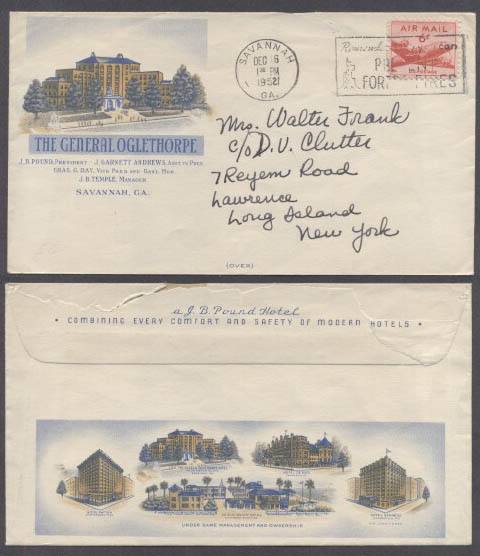 THE GENERAL OGLETHORPE
J. B. POUND, PRESIDENT J. GARNETT ANDREWS, ASS'T TO PRES.
CHAS. G. DAY, VICE PRES. AND GEN'L MGR.
J. B. TEMPLE, MANAGER
SAVANNAH, GA.
SAVANNAH
DEC 16
PM
1952
GA.
AIR MAIL
6¢
can
FOR FIRES
Mrs. Walter Frank
c/o D. V. Clutter
7 Reyem Road
Lawrence
Long Island
New York
(OVER)
a J. B. Pound Hotel
• COMBINING EVERY COMFORT AND SAFETY OF MODERN HOTELS •
UNDER SAME MANAGEMENT AND OWNERSHIP